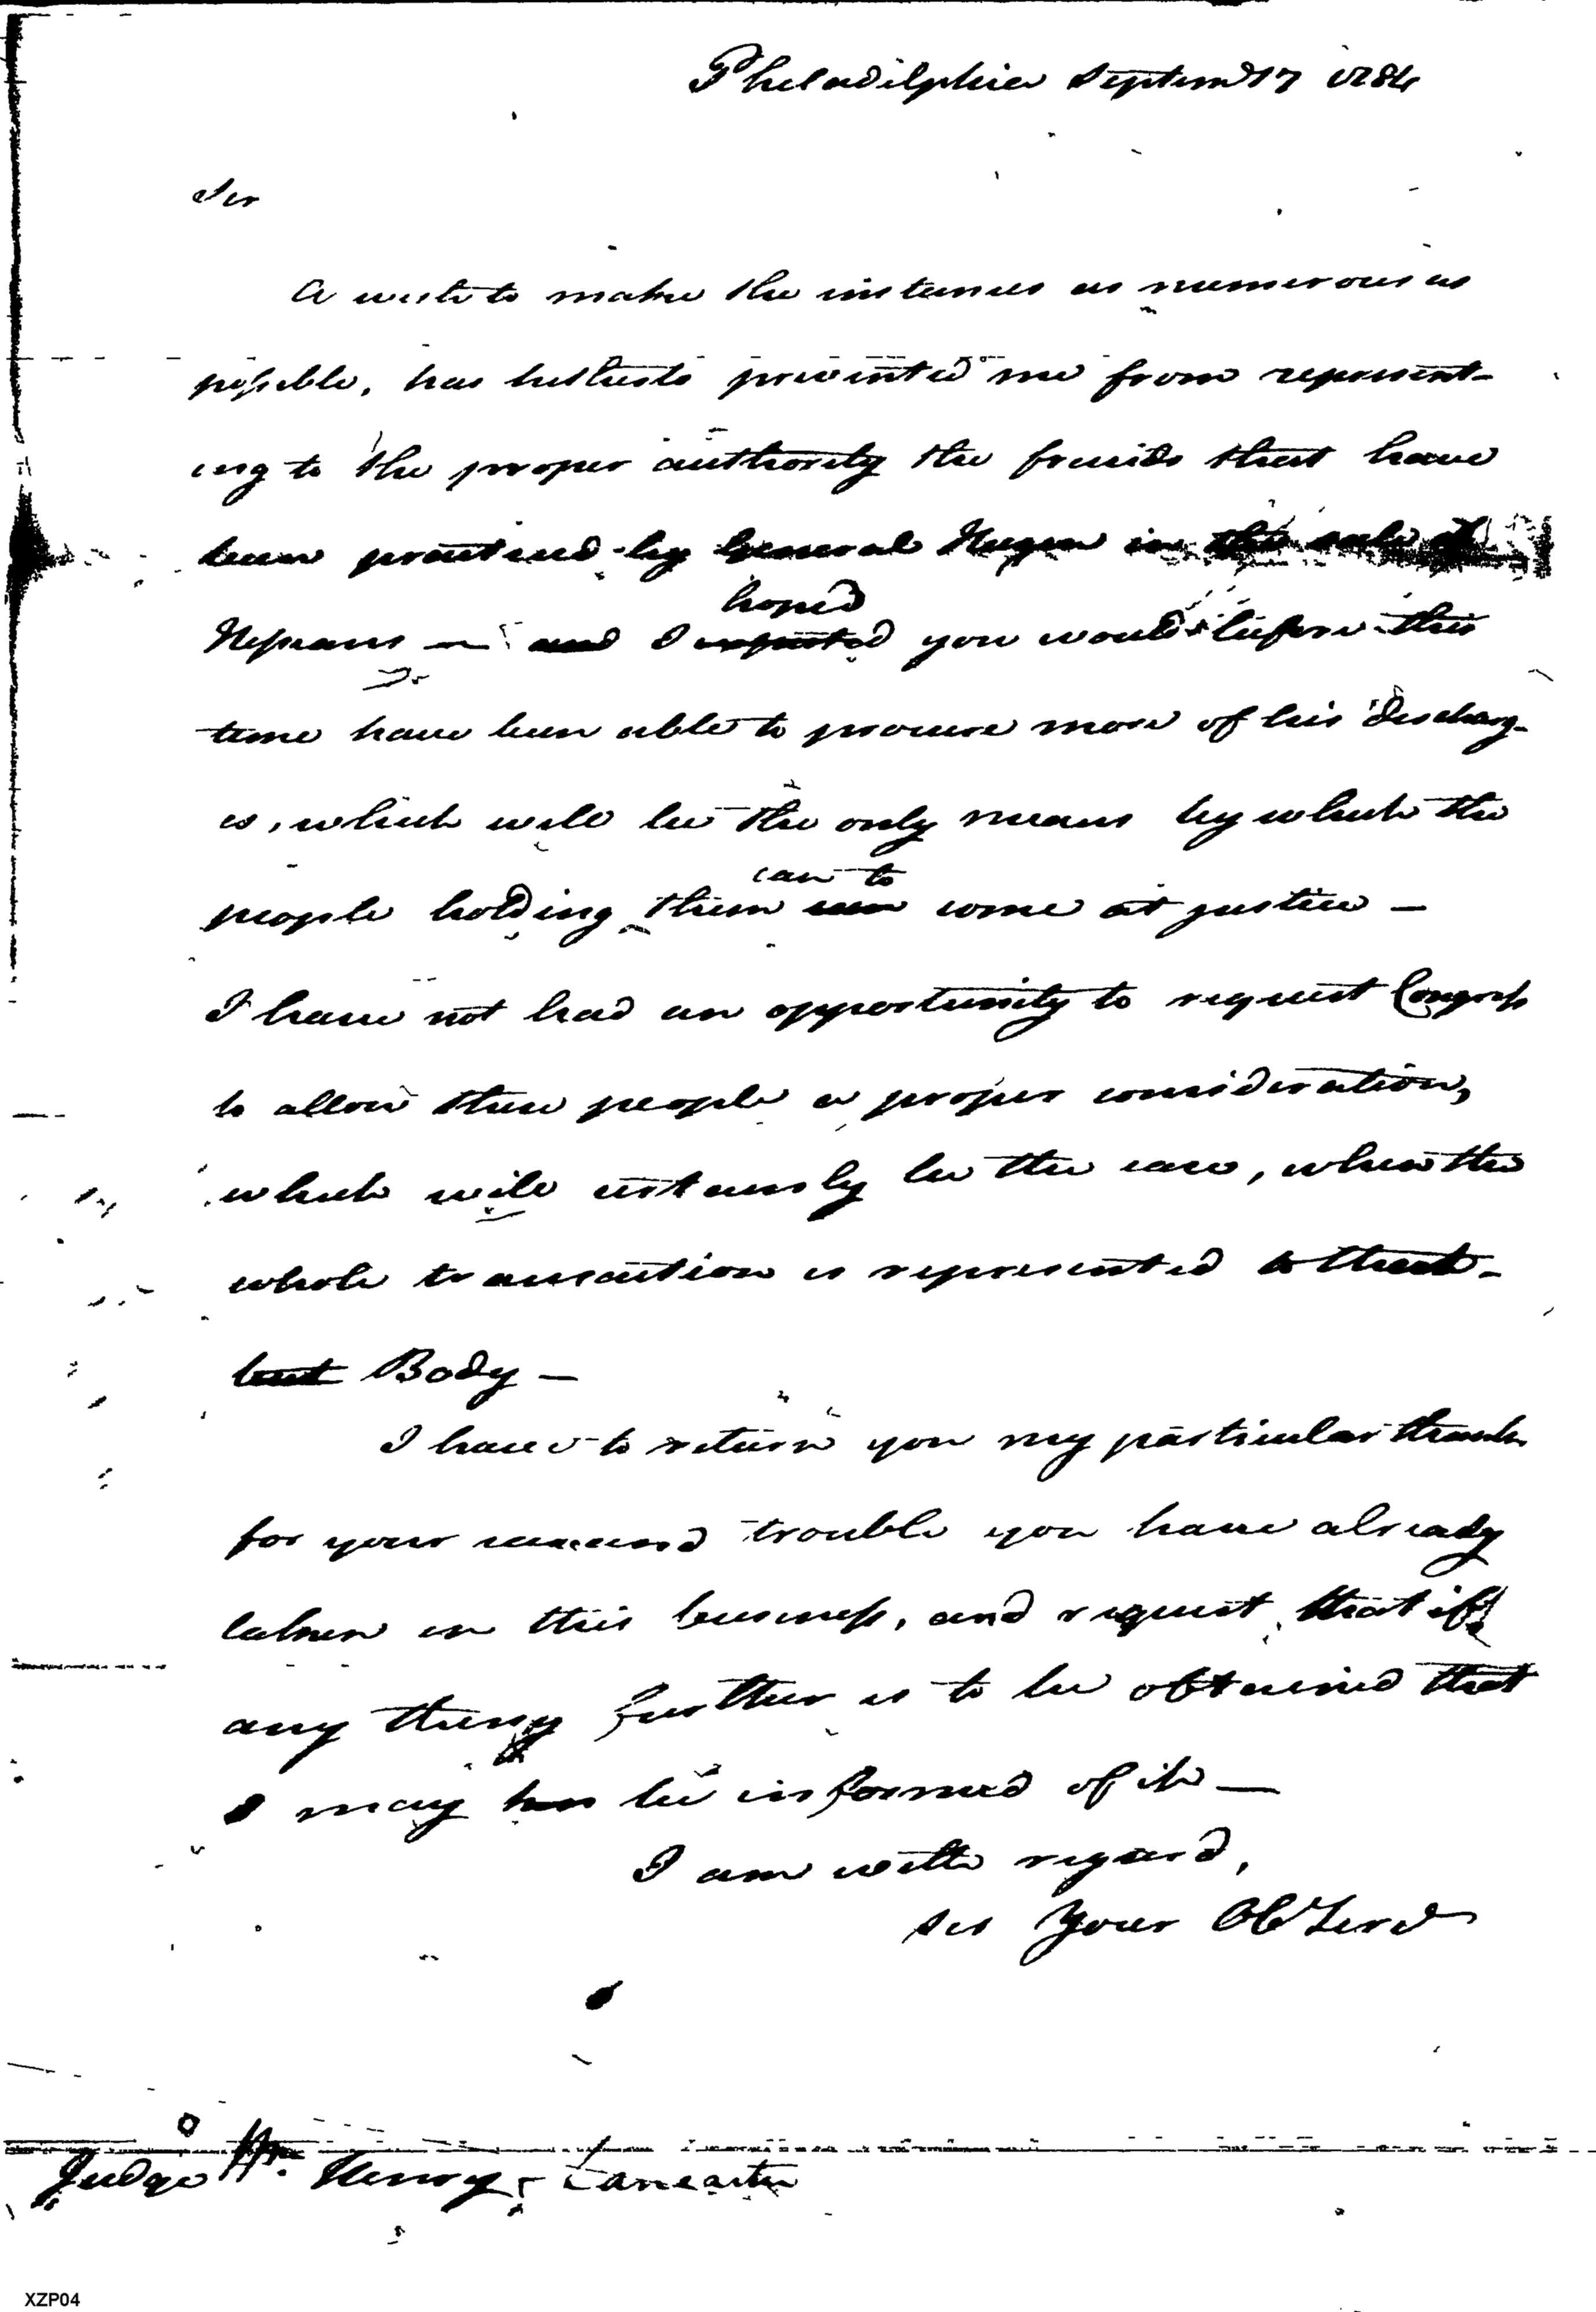 Philadelphia Septemr 17 1784
Sir
A wish to make the instances as numerous as
possible, has hitherto prevented me from represent-
ing to the proper authority the frauds that have
been practised by General Hazen in the sale of
hoped
Hessians — and I expected you would before this
time have been able to procure more of his discharg-
es, which will be the only means by which the
can to
people holding them can come at justice —
I have not had an opportunity to request Congress
to allow these people a proper consideration,
which will certainly be the case, when the
whole transaction is represented to that
Body —
I have to return you my particular thanks
for your trouble you have already
taken in this business, and request that if
any thing further is to be obtained that
I may be informed of it —
I am with regard,
Sir Your Ob Serv
Judge Wm. Henry, Lancaster
XZP04